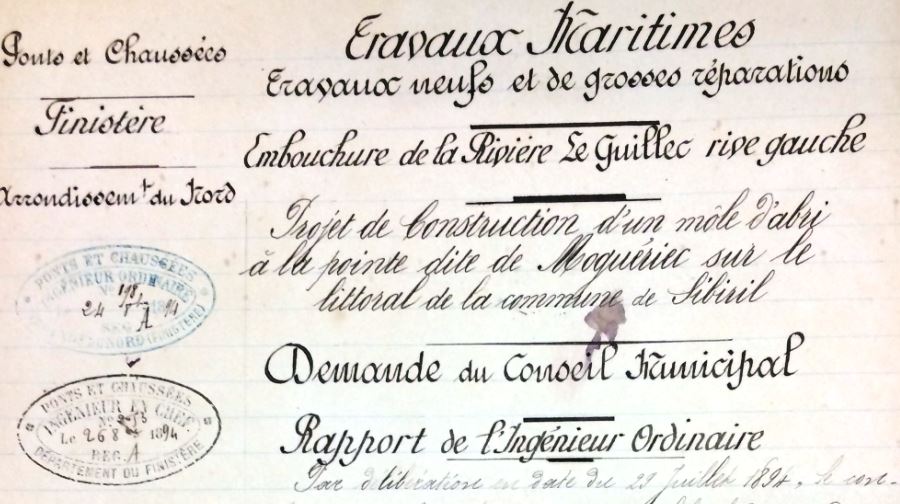 Ponts et Chaussées
Finistère
Arrondissem.t du Nord
Travaux Maritimes
Travaux neufs et de grosses réparations
Embouchure de la Rivière Le Guillec rive gauche
Projet de Construction d'un môle d'abri
à la pointe dite de Moguériec sur le
littoral de la commune de Sibiril
Demande du Conseil Municipal
Rapport de l'Ingénieur Ordinaire
Par délibération en date du 29 Juillet 1894, le con-
PONTS ET CHAUSSÉES
INGÉNIEUR ORDINAIRE
24
A
PONTS ET CHAUSSÉES
INGÉNIEUR EN CHEF
Le 26 8 1894
REG. A
DÉPARTEMENT DU FINISTÈRE